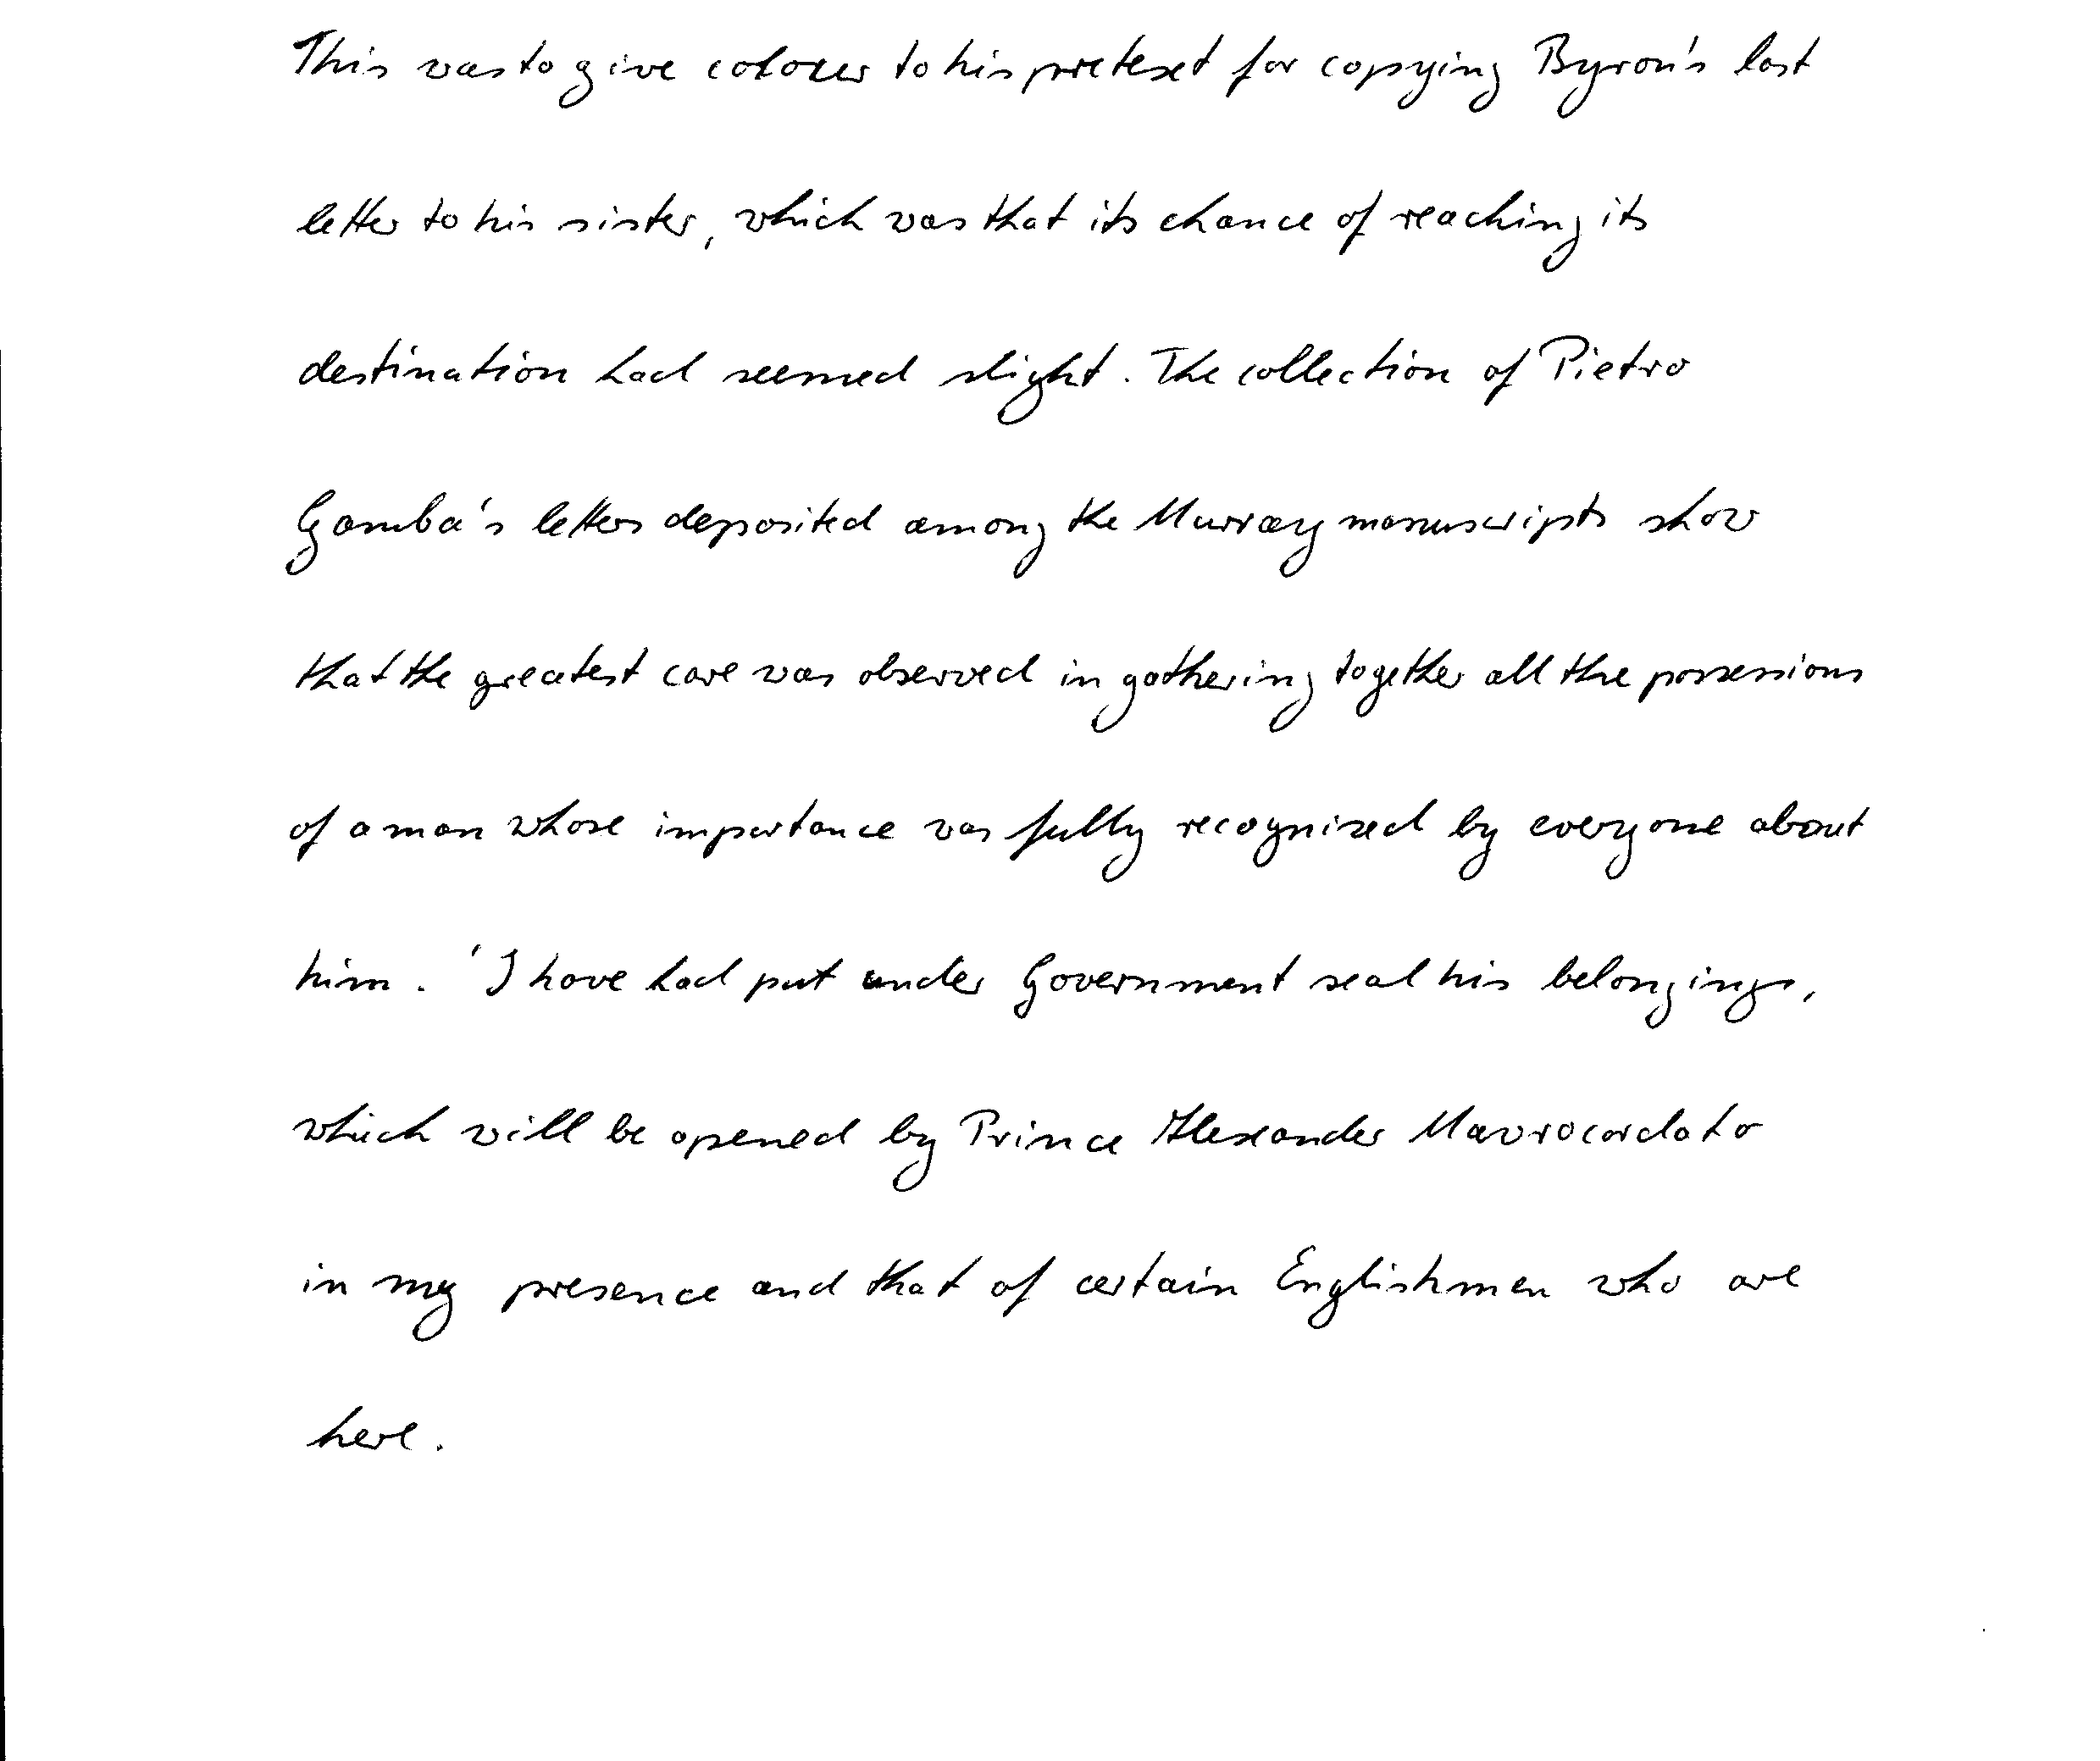 This was to give colour to his pretext for copying Byron's last
letter to his sister, which was that its chance of reaching its
destination had seemed slight. The collection of Pietro
Gamba's letters deposited among the Murray manuscripts show
that the greatest care was observed in gathering together all the possessions
of a man whose importance was fully recognised by everyone about
him. 'I have had put under Government seal his belongings,
which will be opened by Prince Alexander Mavrocordato
in my presence and that of certain Englishmen who are
here.